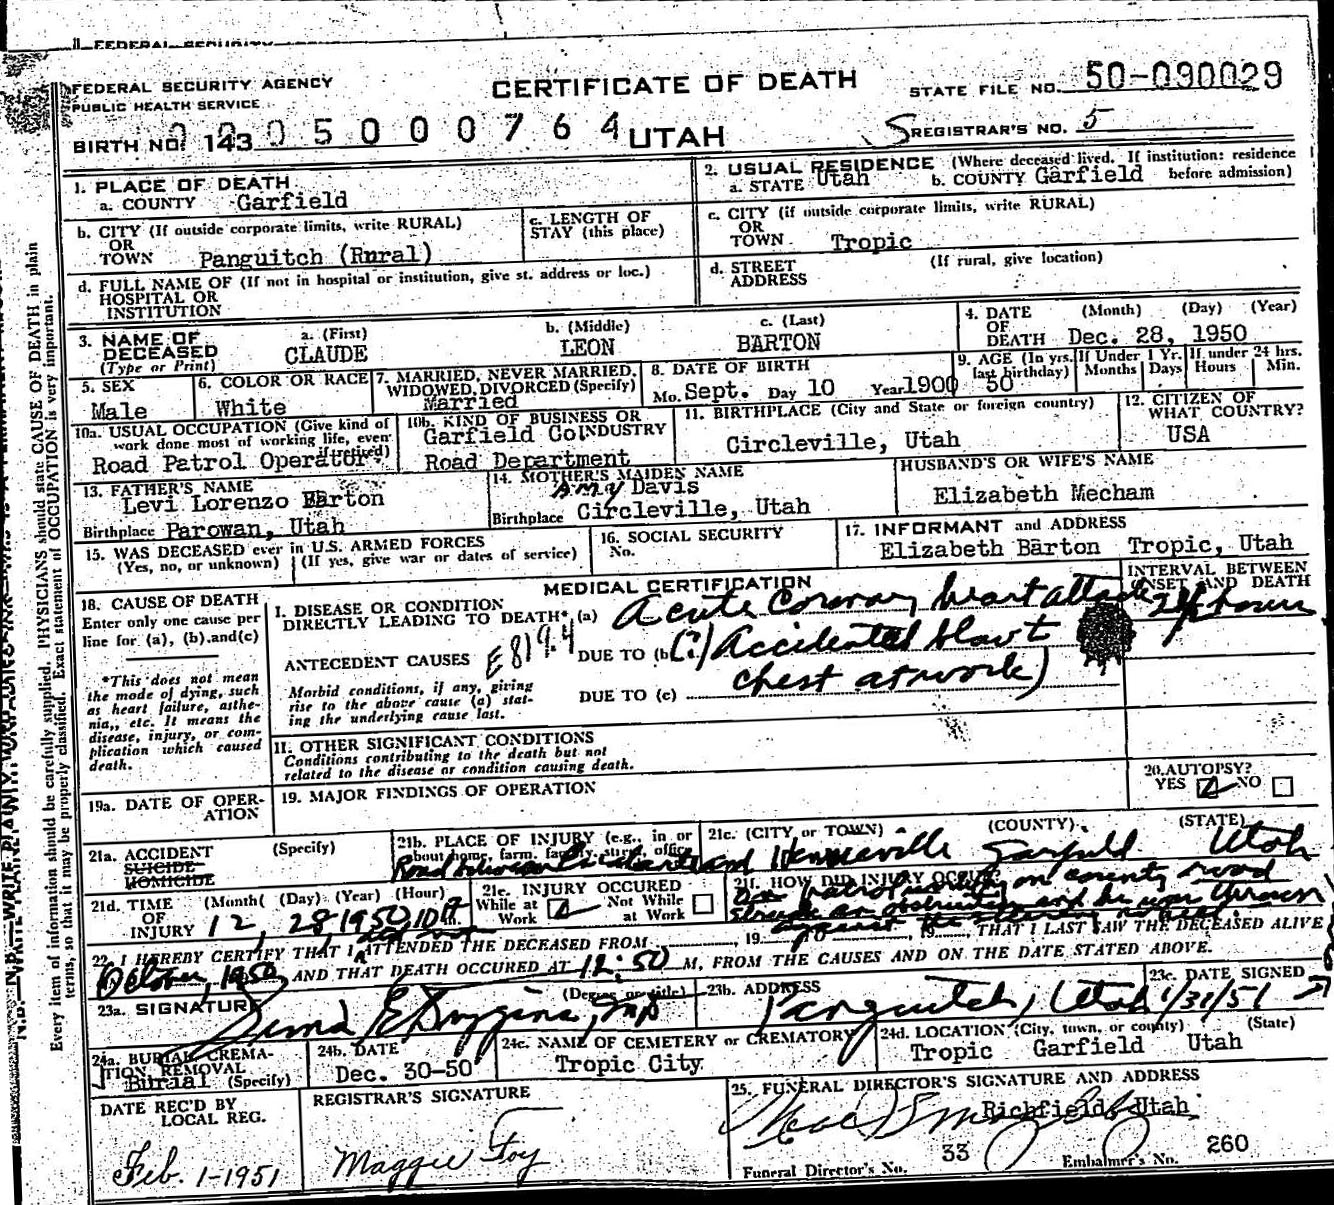 FEDERAL SECURITY
FEDERAL SECURITY AGENCY
PUBLIC HEALTH SERVICE
CERTIFICATE OF DEATH
STATE FILE NO. 50-090029
BIRTH NO. 143
0005000764
UTAH
REGISTRAR'S NO. 5
1. PLACE OF DEATH
a. COUNTY Garfield
2. USUAL RESIDENCE (Where deceased lived. If institution: residence before admission)
a. STATE Utah b. COUNTY Garfield
b. CITY (If outside corporate limits, write RURAL)
OR
TOWN Panguitch (Rural)
c. LENGTH OF
STAY (this place)
c. CITY (if outside corporate limits, write RURAL)
OR
TOWN Tropic
d. FULL NAME OF (If not in hospital or institution, give st. address or loc.)
HOSPITAL OR
INSTITUTION
d. STREET
ADDRESS
(If rural, give location)
3. NAME OF
DECEASED
(Type or Print)
a. (First) b. (Middle) c. (Last)
CLAUDE LEON BARTON
4. DATE (Month) (Day) (Year)
OF
DEATH Dec. 28, 1950
5. SEX
Male
6. COLOR OR RACE
White
7. MARRIED, NEVER MARRIED,
WIDOWED, DIVORCED (Specify)
Married
8. DATE OF BIRTH
Mo. Sept. Day 10 Year 1900
9. AGE (In yrs.
last birthday)
50
If Under 1 Yr.
Months Days
If under 24 hrs.
Hours Min.
10a. USUAL OCCUPATION (Give kind of
work done most of working life, even
if retired)
Road Patrol Operator
10b. KIND OF BUSINESS OR
INDUSTRY
Garfield Co
Road Department
11. BIRTHPLACE (City and State or foreign country)
Circleville, Utah
12. CITIZEN OF
WHAT COUNTRY?
USA
13. FATHER'S NAME
Levi Lorenzo Barton
Birthplace Parowan, Utah
14. MOTHER'S MAIDEN NAME
Amy Davis
Birthplace Circleville, Utah
HUSBAND'S OR WIFE'S NAME
Elizabeth Mecham
15. WAS DECEASED ever in U.S. ARMED FORCES
(Yes, no, or unknown) (If yes, give war or dates of service)
16. SOCIAL SECURITY
No.
17. INFORMANT and ADDRESS
Elizabeth Barton Tropic, Utah
MEDICAL CERTIFICATION
INTERVAL BETWEEN
ONSET AND DEATH
18. CAUSE OF DEATH
Enter only one cause per
line for (a), (b) and (c)
*This does not mean
the mode of dying, such
as heart failure, asthe-
nia, etc. It means the
disease, injury, or com-
plication which caused
death.
I. DISEASE OR CONDITION
DIRECTLY LEADING TO DEATH* (a) Acute Coronary heart attack
2 1/2 hours
ANTECEDENT CAUSES E819.4
DUE TO (b) (?) Accidental blow to
Morbid conditions, if any, giving
rise to the above cause (a) stat-
ing the underlying cause last.
DUE TO (c) chest at work)
II. OTHER SIGNIFICANT CONDITIONS
Conditions contributing to the death but not
related to the disease or condition causing death.
19a. DATE OF OPER-
ATION
19. MAJOR FINDINGS OF OPERATION
20. AUTOPSY?
YES NO
21a. ACCIDENT
SUICIDE
HOMICIDE
(Specify)
21b. PLACE OF INJURY (e.g., in or
about home, farm, factory, street, office
21c. (CITY or TOWN) (COUNTY) (STATE)
Road between and Henrieville Garfield Utah
21d. TIME (Month) (Day) (Year) (Hour)
OF
INJURY 12, 28, 1950 10
21e. INJURY OCCURED
While at
Work
Not While
at Work
21f. HOW DID INJURY OCCUR?
on county road
struck an obstruction and he was thrown
against the steering
22. I HEREBY CERTIFY THAT I ATTENDED THE DECEASED FROM , 19 TO , 19 , THAT I LAST SAW THE DECEASED ALIVE
October, 1950 AND THAT DEATH OCCURED AT 12:50 M, FROM THE CAUSES AND ON THE DATE STATED ABOVE.
23a. SIGNATURE (Degree or title)
Duggins, MD
23b. ADDRESS
Panguitch, Utah
23c. DATE SIGNED
1/31/51
24a. BURIAL, CREMA-
TION, REMOVAL
Burial (Specify)
24b. DATE
Dec. 30-50
24c. NAME OF CEMETERY or CREMATORY
Tropic City
24d. LOCATION (City, town, or county) (State)
Tropic Garfield Utah
DATE REC'D BY
LOCAL REG.
Feb. 1-1951
REGISTRAR'S SIGNATURE
Maggie Foy
25. FUNERAL DIRECTOR'S SIGNATURE AND ADDRESS
Richfield, Utah
Funeral Director's No. 33 Embalmer's No. 260
Every item of information should be carefully supplied. PHYSICIANS should state CAUSE OF DEATH in plain
terms, so that it may be properly classified. Exact statement of OCCUPATION is very important.